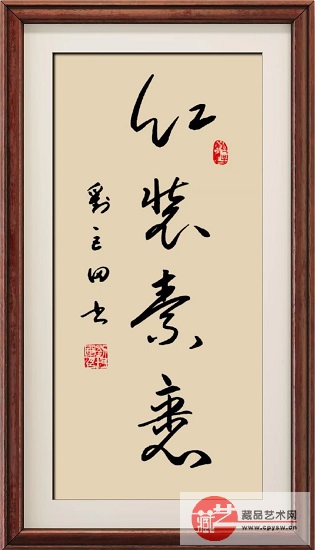 红装素裹
劉立田书
藏艺
藏品艺术网
www.cpysw.cn